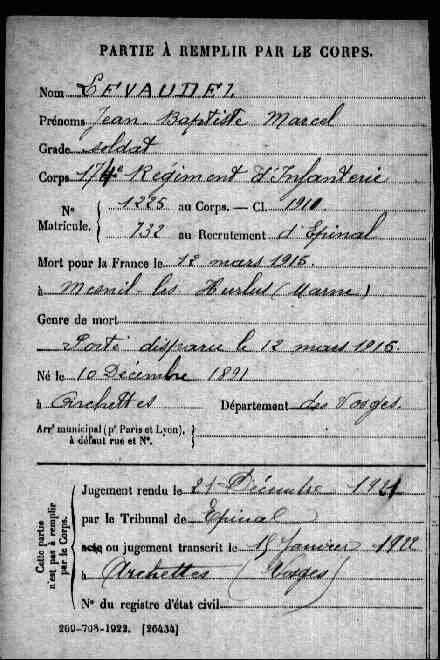 PARTIE À REMPLIR PAR LE CORPS.
Nom LEVAUDEL
Prénoms Jean Baptiste Marcel
Grade soldat
Corps 174e Régiment d'Infanterie
N° Matricule. { 1225 au Corps. — Cl. 1911
732 au Recrutement d'Epinal
Mort pour la France le 12 mars 1915.
à Mesnil les Hurlus (Marne)
Genre de mort
Porté disparu le 12 mars 1915.
Né le 10 Décembre 1891
à Archettes Département des Vosges.
Arrt municipal (pr Paris et Lyon),
à défaut rue et N°.
Cette partie n'est pas à remplir par le Corps.
Jugement rendu le 21 Décembre 1921
par le Tribunal de Epinal
acte ou jugement transcrit le 15 Janvier 1922
à Archettes (Vosges)
N° du registre d'état civil
269-708-1922. [26434]